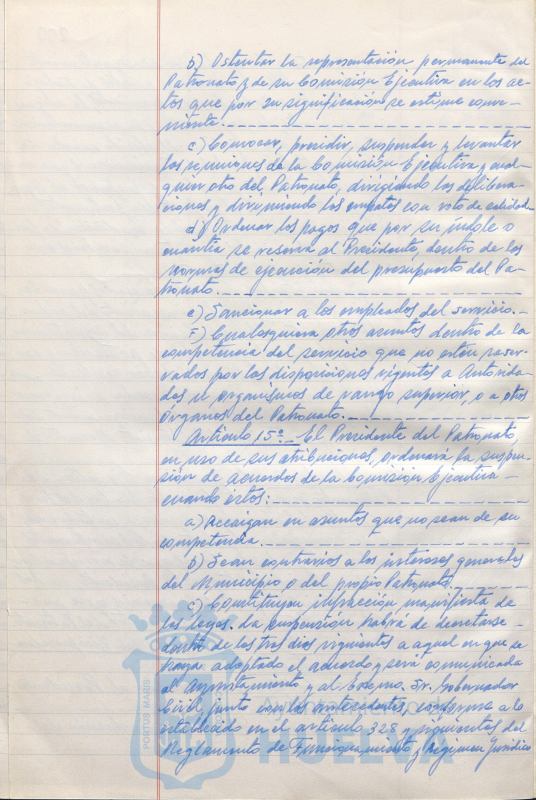 b) Ostentar la representación permanente del
Patronato y de su Comisión Ejecutiva en los ac-
tos que por su significación se estime conve-
niente.
c) Convocar, presidir, suspender y levantar
las reuniones de la Comisión Ejecutiva y cual-
quier otro del Patronato, dirigiendo las delibera-
ciones y dirimiendo los empates con voto de calidad.
d) Ordenar los pagos que por su índole o
cuantía se reserva al Presidente, dentro de las
normas de ejecución del presupuesto del Pa-
tronato.
e) Sancionar a los empleados del servicio.-
F) Cualesquiera otros asuntos dentro de la
competencia del servicio que no estén reser-
vados por las disposiciones vigentes a Autorida-
des u organismos de rango superior, o a otros
Órganos del Patronato.
Artículo 15º.- El Presidente del Patronato,
en uso de sus atribuciones, ordenará la suspen-
sión de acuerdos de la Comisión Ejecutiva
cuando éstos:
a) Recaigan en asuntos que no sean de su
competencia.
b) Sean contrarios a los intereses generales
del Municipio o del propio Patronato.
c) Constituyan infracción manifiesta de
las leyes. La suspensión habrá de decretarse
dentro de los tres días siguientes a aquel en que se
haya adoptado el acuerdo y será comunicada
al Ayuntamiento y al Excmo. Sr. Gobernador
Civil, junto con los antecedentes, conforme a lo
establecido en el artículo 328 y siguientes del
Reglamento de Funcionamiento y Régimen Jurídico
PORTUS MARIS
HUELVA